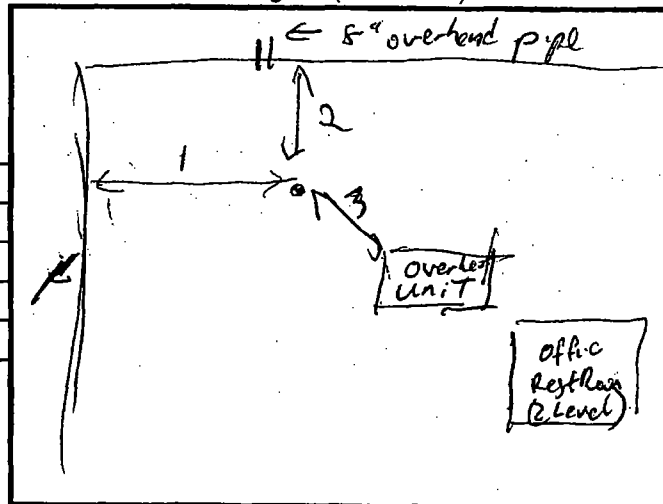 ← 8" overhead pipe
2
1
3
overhead
UniT
Offic
RestRoom
(2 Level)